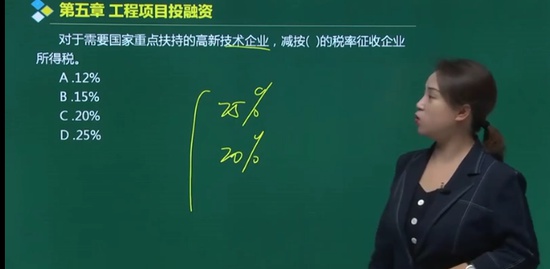 第五章 工程项目投融资
对于需要国家重点扶持的高新技术企业，减按( )的税率征收企业
所得税。
A.12%
B.15%
C.20%
D.25%
25%
20%